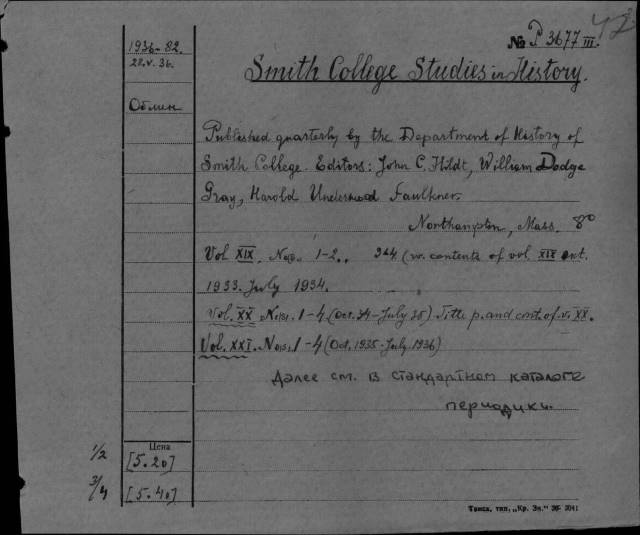 42
№ P 3677 III.
1936-82.
22.V.36.
Smith College Studies in History.
Обмен
Published quarterly by the Department of History of
Smith College. Editors: John C. Hildt, William Dodge
Gray, Harold Underwood Faulkner.
Northampton, Mass. 8°
Vol XIX. No(s). 1-2., 3&4 (w. contents of vol. XIX Oct.
1933. July 1934.
Vol. XX No(s). 1-4. (Oct. 34-July 35) Title p. and cont. of v. XX.
Vol. XXI. No(s). 1-4 (Oct. 1935-July 1936)
Далее см. в стандартном каталоге
периодики.
Цена
1/2 [5.20]
3/4 [5.40]
Тип. „Кр. Зн." 36- 2041